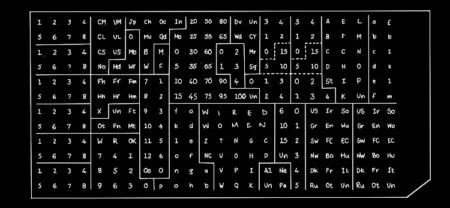 1 2 3 4 CM UM Jp Ch Oc In 20 50 80 Dv Un 3 4 3 4 A E L a g
5 6 7 8 CL UL O Mu Qd Mo 25 55 65 Wd CY B F M b b
1 2 3 4 CS US Mb B M 0 30 60 0 2 Mr 0 15 0 15 C C N c 1
5 6 7 8 No Hd Wr W F 5 35 65 1 3 Sg 5 10 5 10 D H O d k
1 2 3 4 Fh Fr Fm 7 1 10 40 70 90 4 0 1 3 0 2 St I P e 1
5 6 7 8 Hh Hf Hm 8 2 15 45 75 95 100 Un 2 4 1 3 4 K Un f m
1 2 3 4 X Un Ft 9 3 f a W I R E D 6 0 US Ir So US Ir So
5 6 7 8 Ot En Mt 10 4 k d W O M E N 10 1 Gr En Wa Gr En Wo
1 2 3 4 W R OK 11 5 l e Z T N G C 15 2 Sw FC EC Sw FC EC
5 6 7 8 7 4 1 12 6 o f NC V O H D Un 3 Nw Bo Hu Nw Bo Hu
1 2 3 4 8 5 2 Oo 0 n g U V P I Al Na 4 Dk Fr It Dk Fr It
5 6 7 8 9 6 3 0 p a h b W Q K Un Pa 5 Ru Ot Un Ru Ot Un